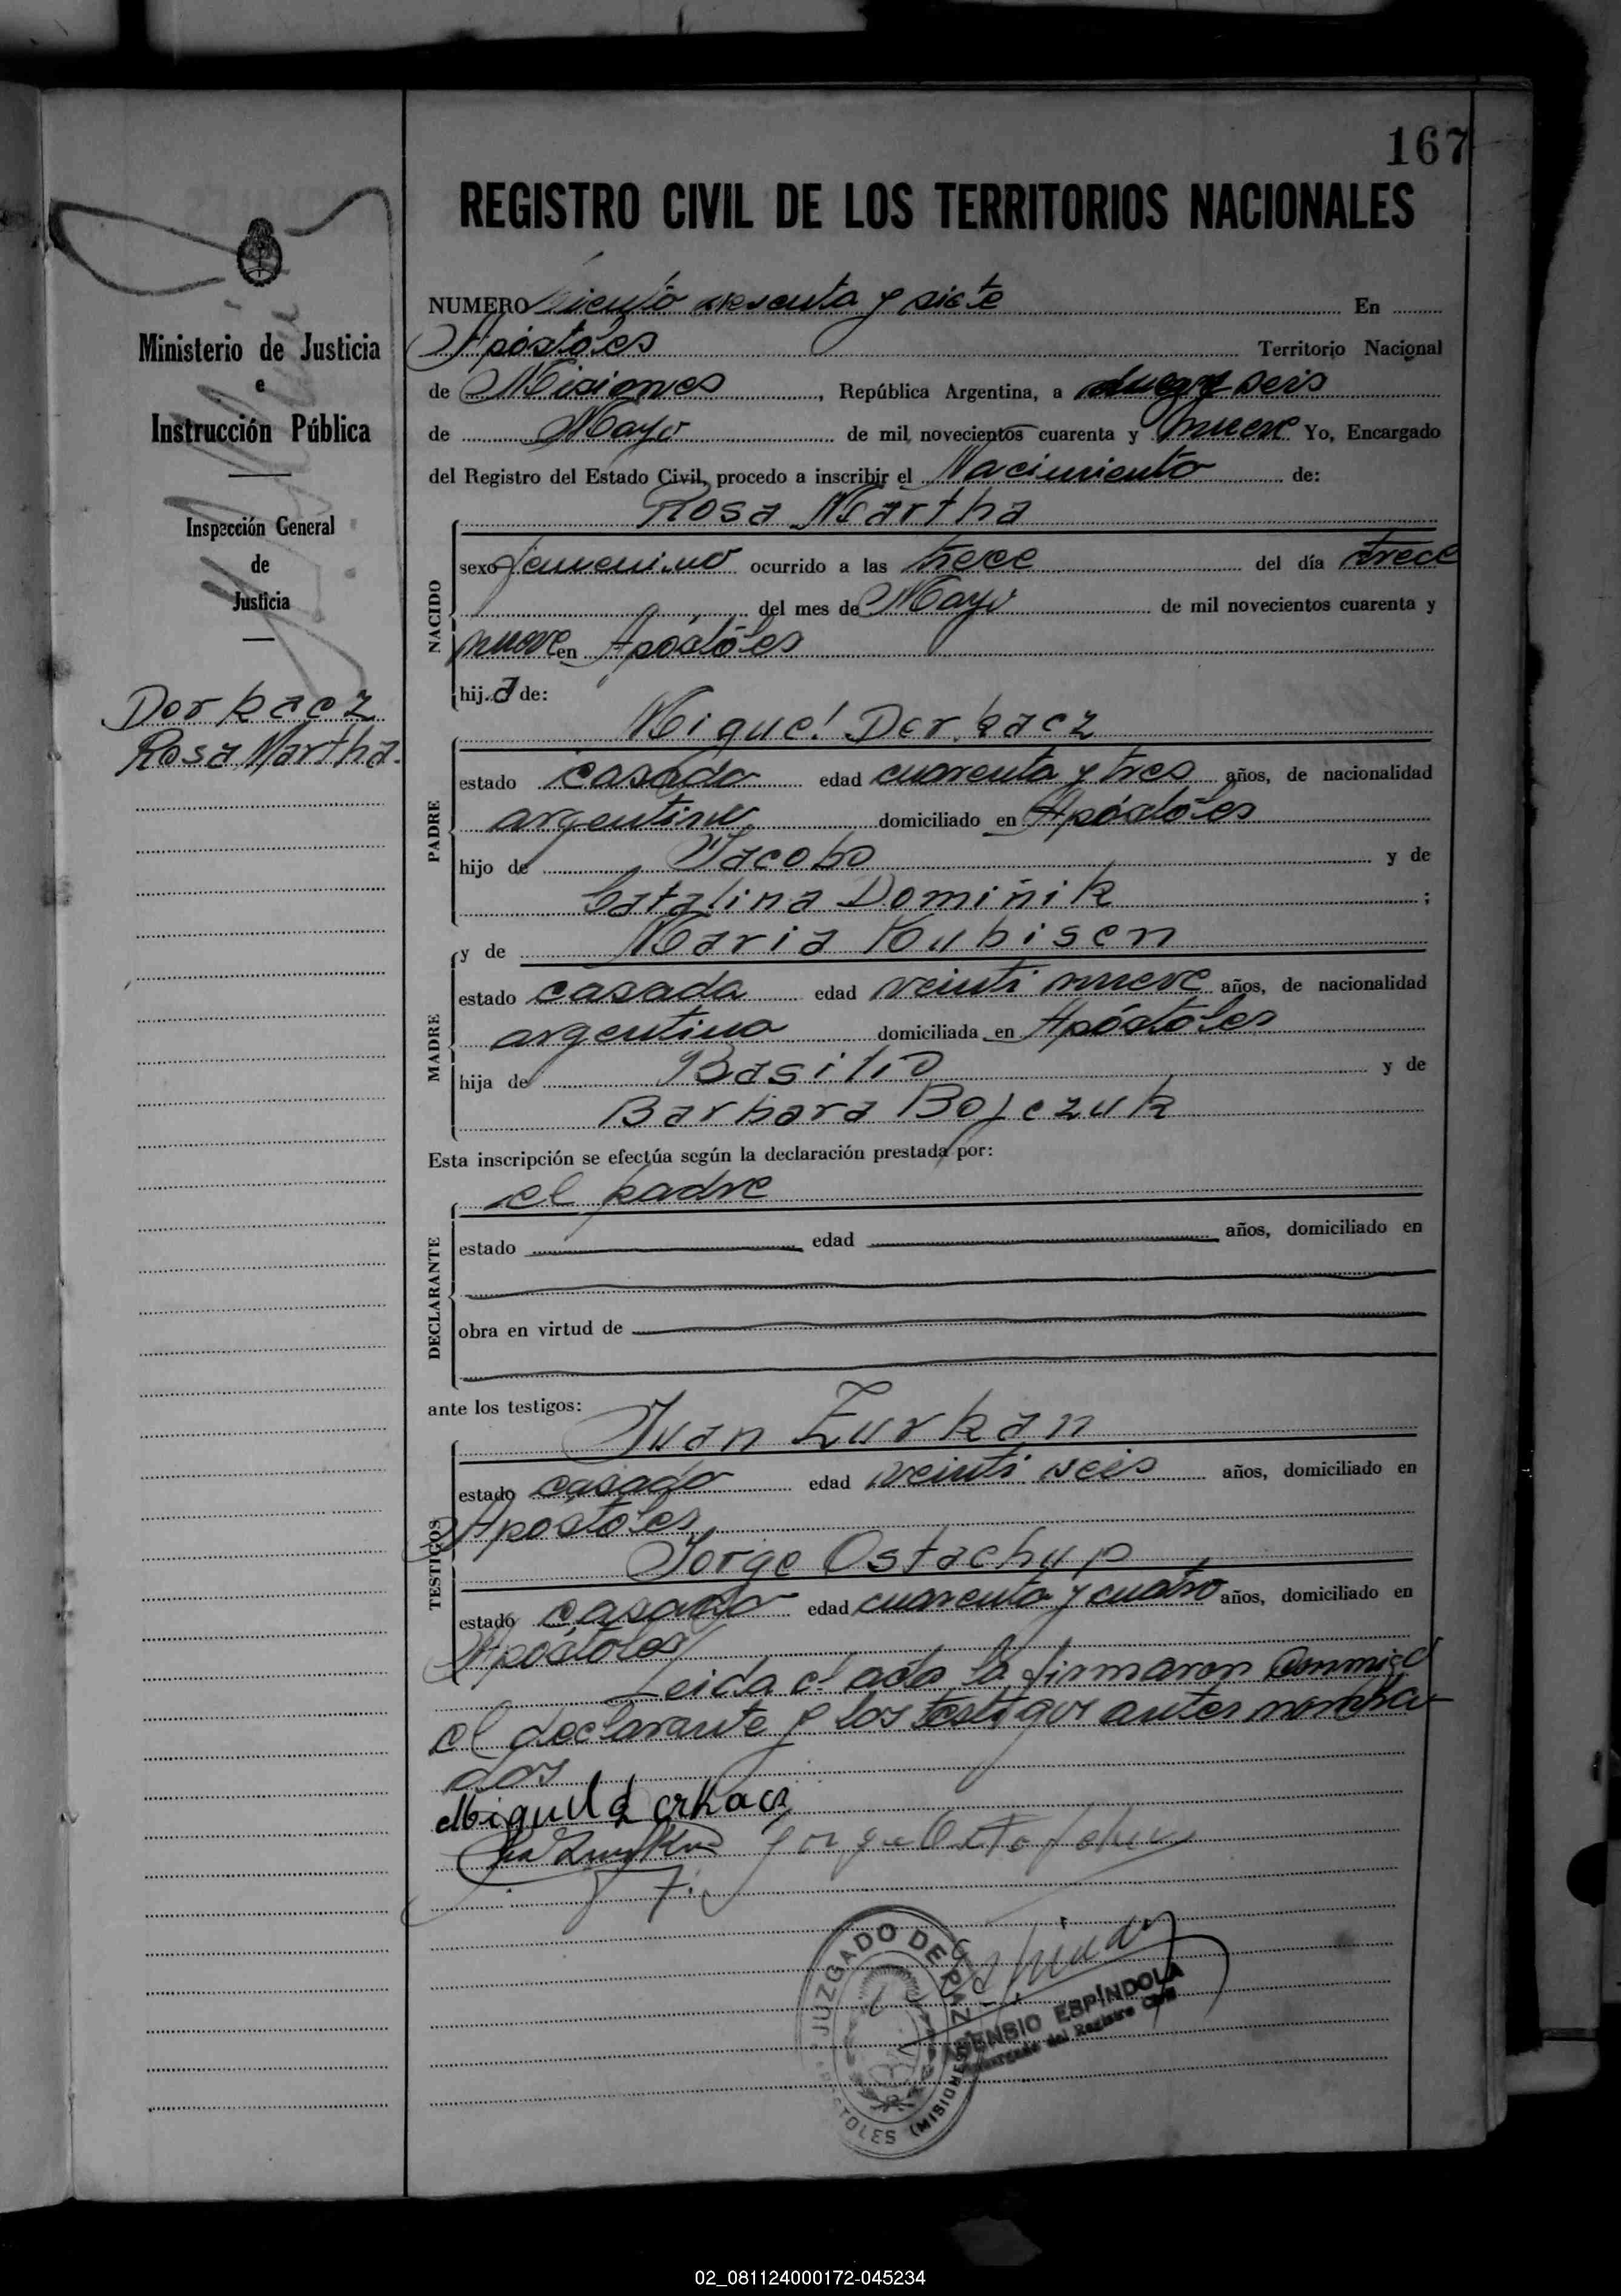 167
REGISTRO CIVIL DE LOS TERRITORIOS NACIONALES
NUMERO Ciento sesenta y siete En
Apóstoles Territorio Nacional
de Misiones, República Argentina, a diez y seis
de Mayo de mil novecientos cuarenta y nueve Yo, Encargado
del Registro del Estado Civil, procedo a inscribir el Nacimiento de:
Rosa Martha
NACIDO
sexo femenino ocurrido a las trece del día trece
del mes de Mayo de mil novecientos cuarenta y
nueve en Apóstoles
hij.a de:
Miguel Derkacz
PADRE
estado casado edad cuarenta y tres años, de nacionalidad
argentino domiciliado en Apóstoles
hijo de Jacobo y de
Catalina Dominik ;
y de Maria Kubisen
MADRE
estado casada edad veinti nueve años, de nacionalidad
argentina domiciliada en Apóstoles
hija de Basilio y de
Barbara Bojczuk
Esta inscripción se efectúa según la declaración prestada por:
el padre
DECLARANTE
estado edad años, domiciliado en
obra en virtud de
ante los testigos:
Juan Zurkan
TESTIGOS
estado casado edad veinti seis años, domiciliado en
Apostoles
Jorge Ostachyp
estado casado edad cuarenta y cuatro años, domiciliado en
Apóstoles
Leida el acta la firmaron conmigo
el declarante y los testigos antes nombra-
dos
Miguel Derkacz
JUZGADO DE PAZ
APOSTOLES (MISIONES)
ASENSIO ESPÍNDOLA
Encargado del Registro Civil
Ministerio de Justicia
e
Instrucción Pública
Inspección General
de
Justicia
Derkacz
Rosa Martha.
02_081124000172-045234